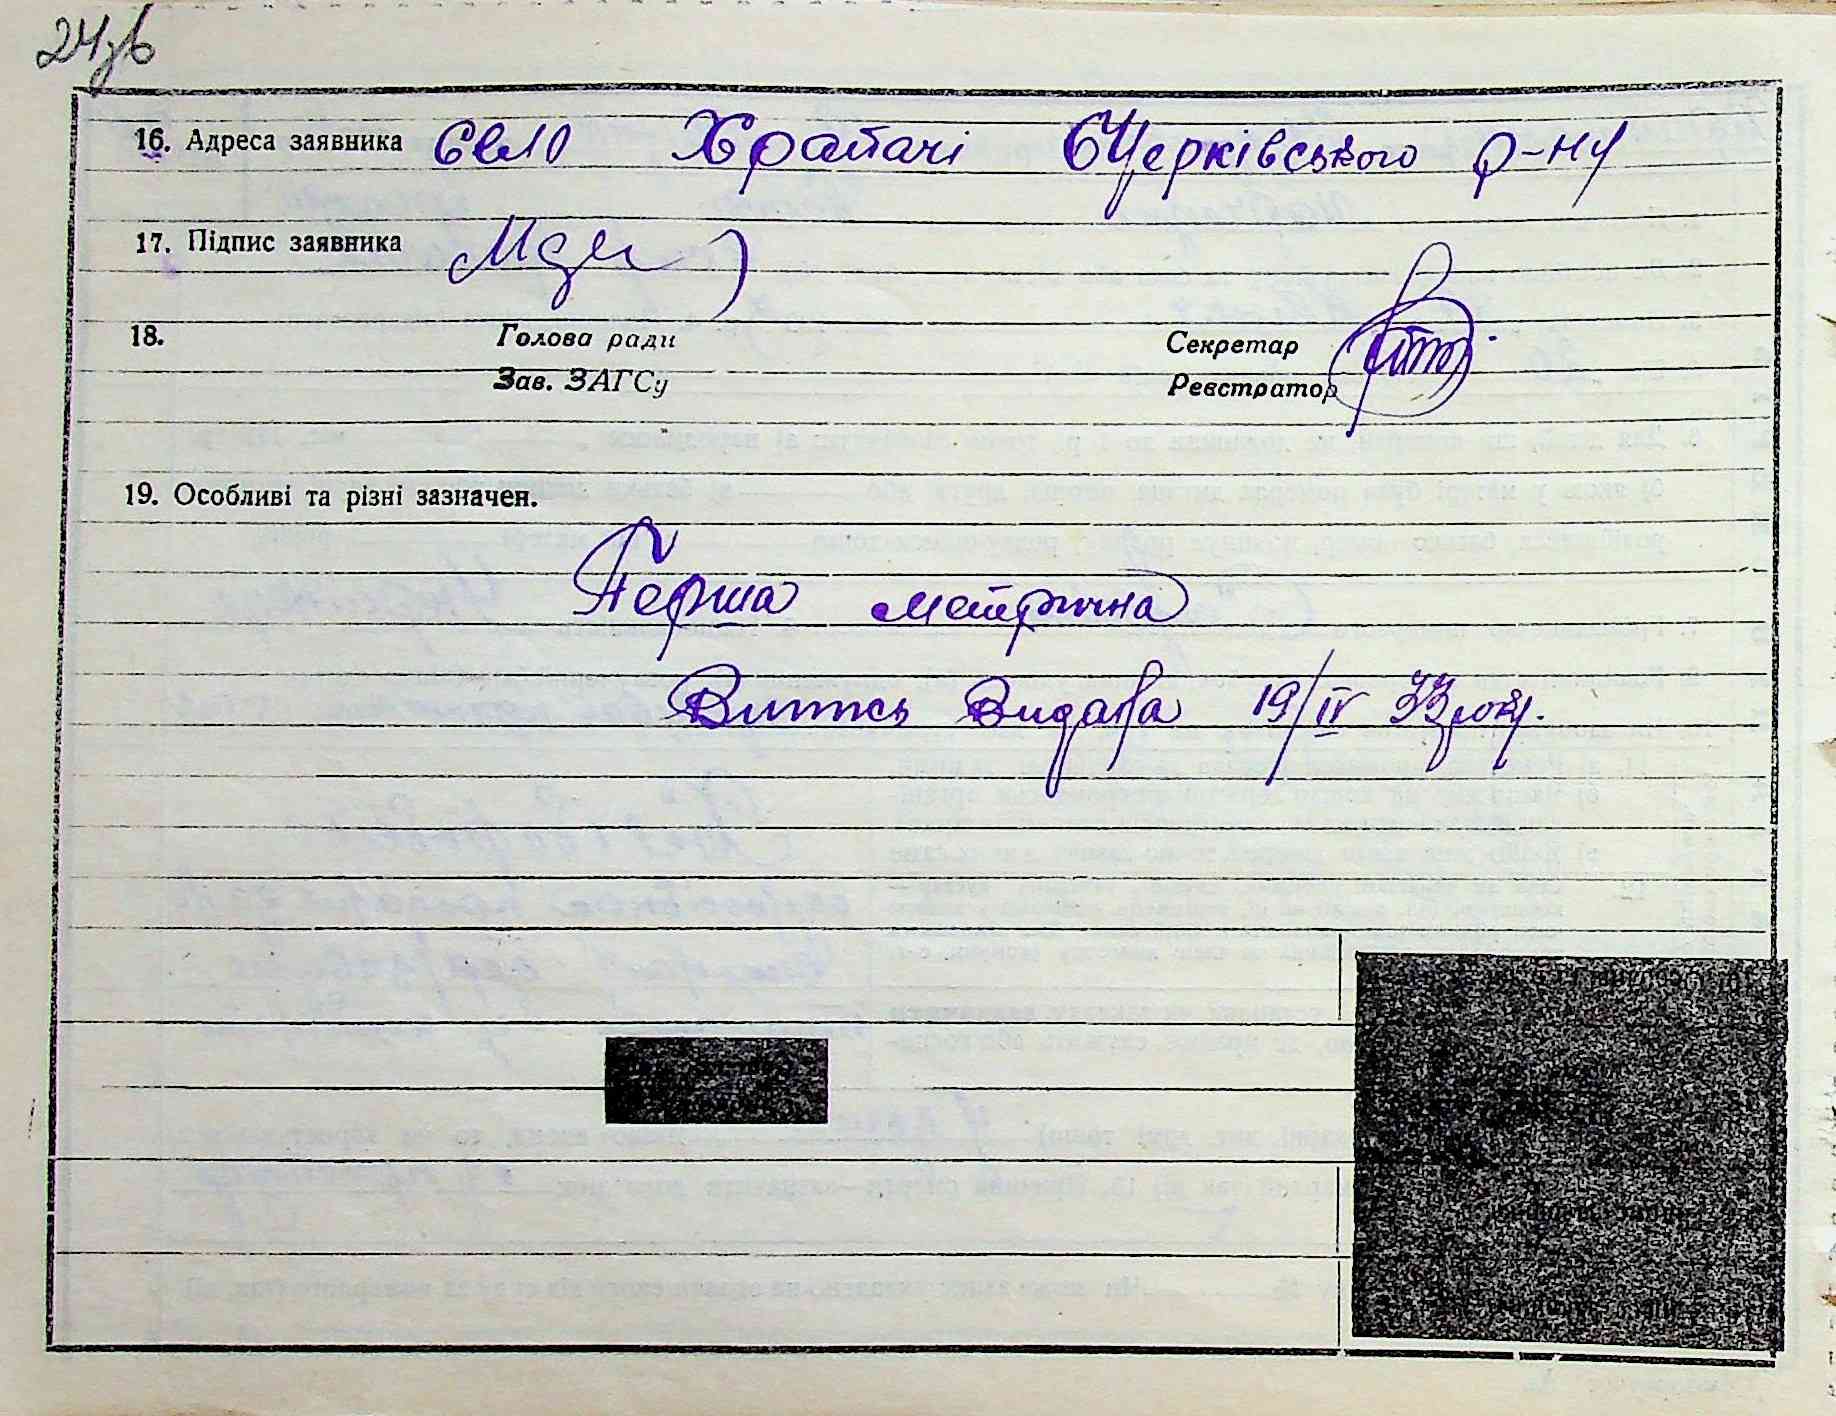 24зв
16. Адреса заявника село Храпачі БЦерківського р-ну
17. Підпис заявника
18. Голова ради Секретар
Зав. ЗАГСу Реєстратор
19. Особливі та різні зазначен.
Перша метрична
Випись Видана 19/IV 33 року.